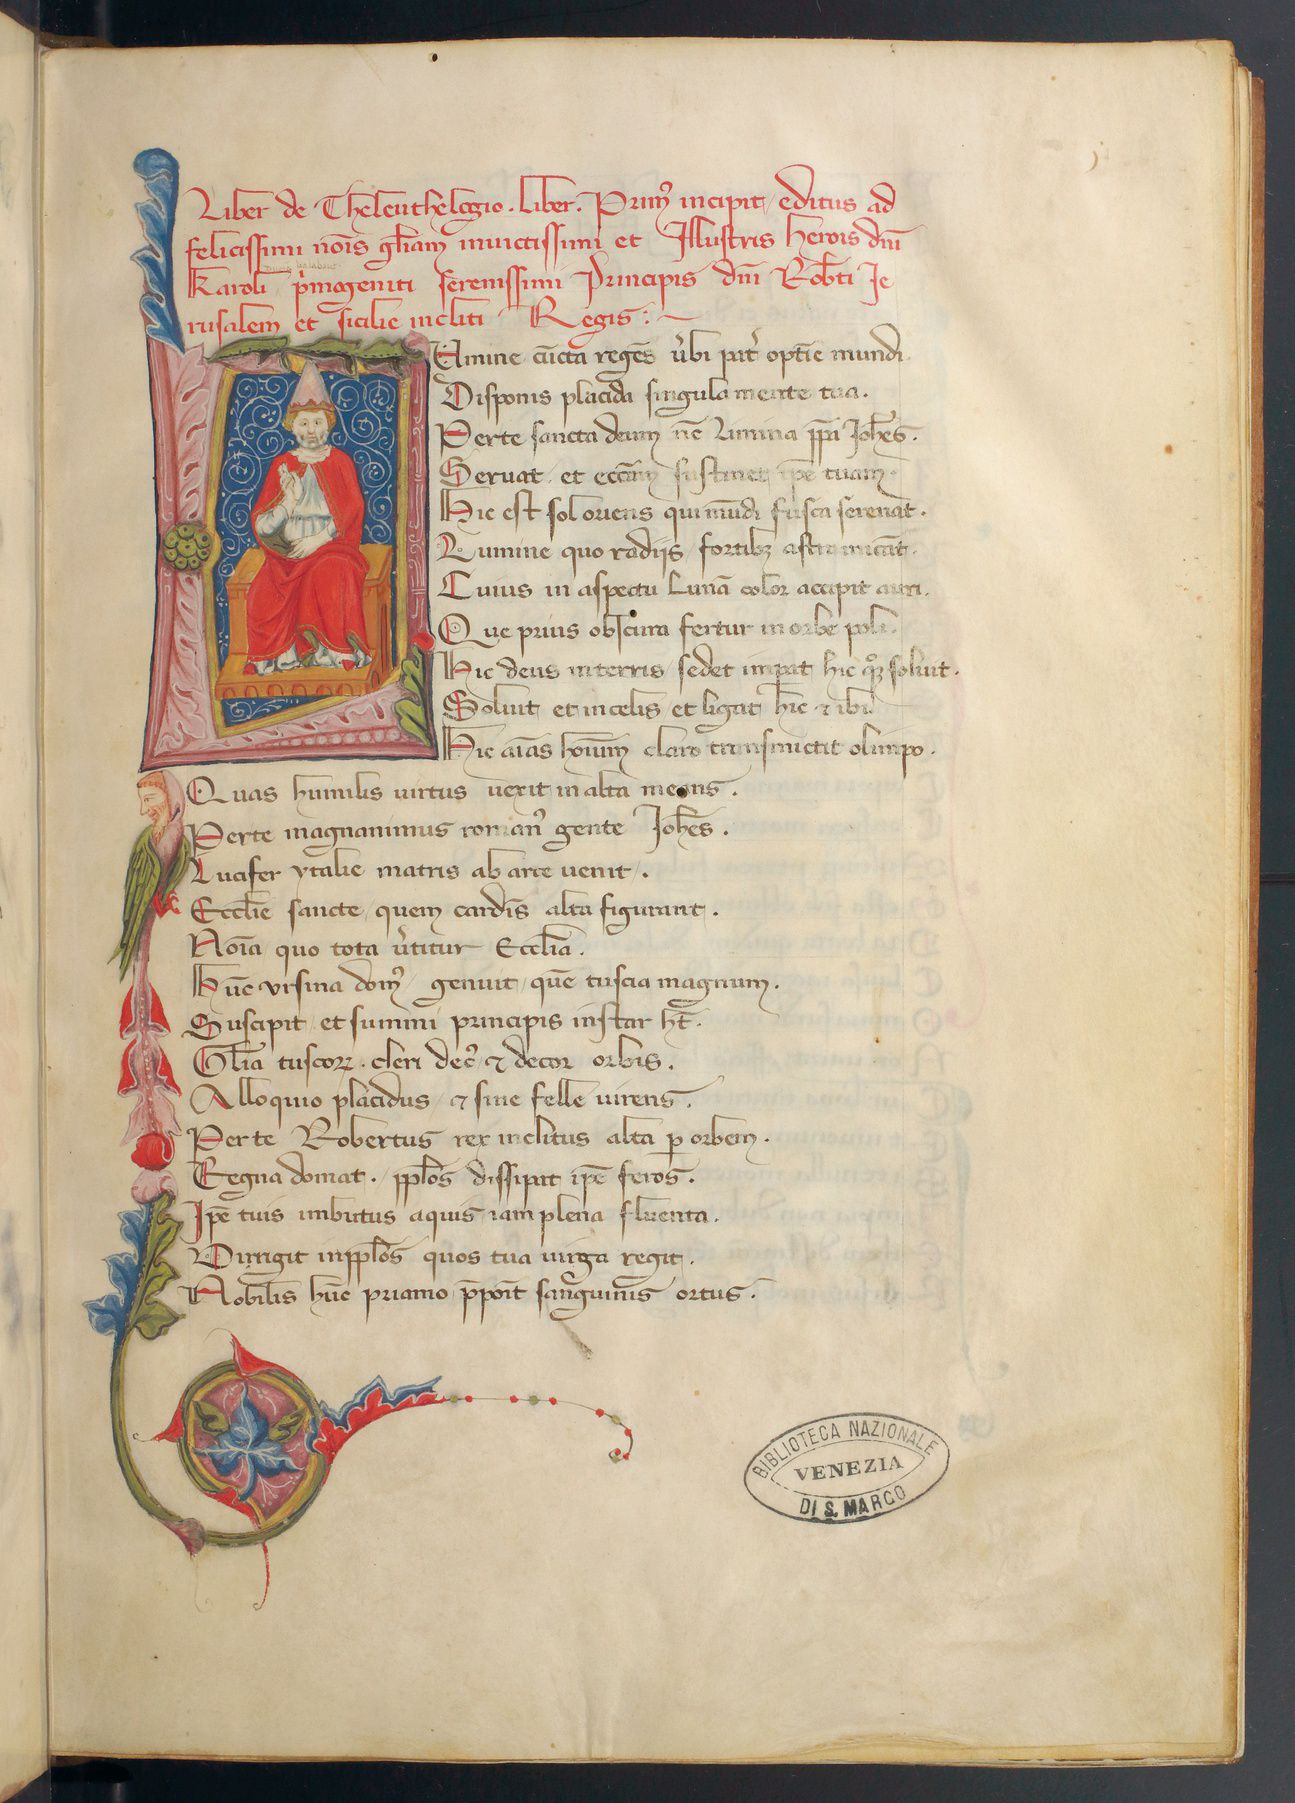 Liber de Theleuthelogio. liber. Prim⁹ incipit, editus ad
felicissimi nōis gl̄iam inuictissimi et Illustris herois dn̄i
Karoli p̄mogeniti serenissimi Principis dn̄i Rob̄ti Je
rusalem et sicilie incliti Regis:
Lumine cūcta regēs v̄bi pat̄ optīe mundi
Disponis placida singula mente tua.
Per te sancta deum nē Limina pp̄a Joh̄es.
Seruat et ecc̄am sustinet ip̄e tuam.
Hic est sol oriens qui mūdi fusca serenat.
Lumine quo radijs fortibꝫ astra micāt.
Cuius in aspectu Lunā color accipit auri.
Que prius obscura fertur in orbe poli.
Hic deus in terris sedet imꝑat hic qꝫ soluit.
Soluit et in celis et ligat hic ⁊ ibi
Hic aīas hoīum claro transmictit olimpo.
Quas humilis uirtus uexit in alta means.
Per te magnanimus roman⁹ gente Joh̄es.
Lucifer ytalie matris ab arce uenit.
Eccl̄ie sancte quem cardīs alta figurant.
Noīa quo tota v̄titur Eccl̄ia.
Hūc vrsina dom⁹ genuit quē tuscia magnum.
Suscipit et summi principis instar h̄t.
Gl̄ia tuscoꝝ. cleri dec⁹ ⁊ decor orbis.
Alloquio placidus ⁊ sine felle uirens.
Per te Robertus rex inclitus alta ꝑ orbem.
Regna domat. ppl̄os dissipat ip̄e feros.
Ip̄e tuis imbutus aquis iam plena fluenta.
Dirrigit in ppl̄os quos tua uirga regit.
Nobilis hūc priamo p̄poīt sanguinis ortus.
BIBLIOTECA NAZIONALE
VENEZIA
DI S. MARCO